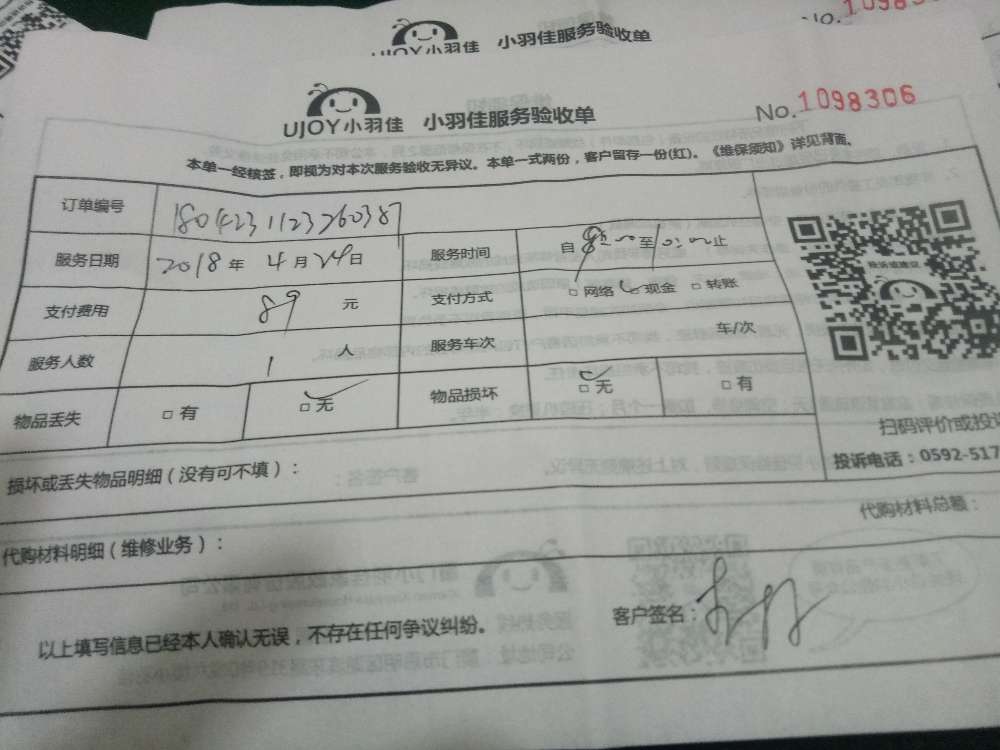 UJOY小羽佳 小羽佳服务验收单
No.
UJOY小羽佳 小羽佳服务验收单 No.1098306
本单一经核签，即视为对本次服务验收无异议。本单一式两份，客户留存一份(红)。《维保须知》详见背面。
订单编号 1804231123260387
服务日期 2018年4月24日 服务时间 自 至 止
支付费用 89 元 支付方式 □网络 □现金 □转账
服务人数 1 人 服务车次 车/次
物品丢失 □有 □无 物品损坏 □无 □有
扫码评价或投诉
损坏或丢失物品明细（没有可不填）： 投诉电话：0592-517
代购材料明细（维修业务）： 代购材料总额：
以上填写信息已经本人确认无误，不存在任何争议纠纷。 客户签名：